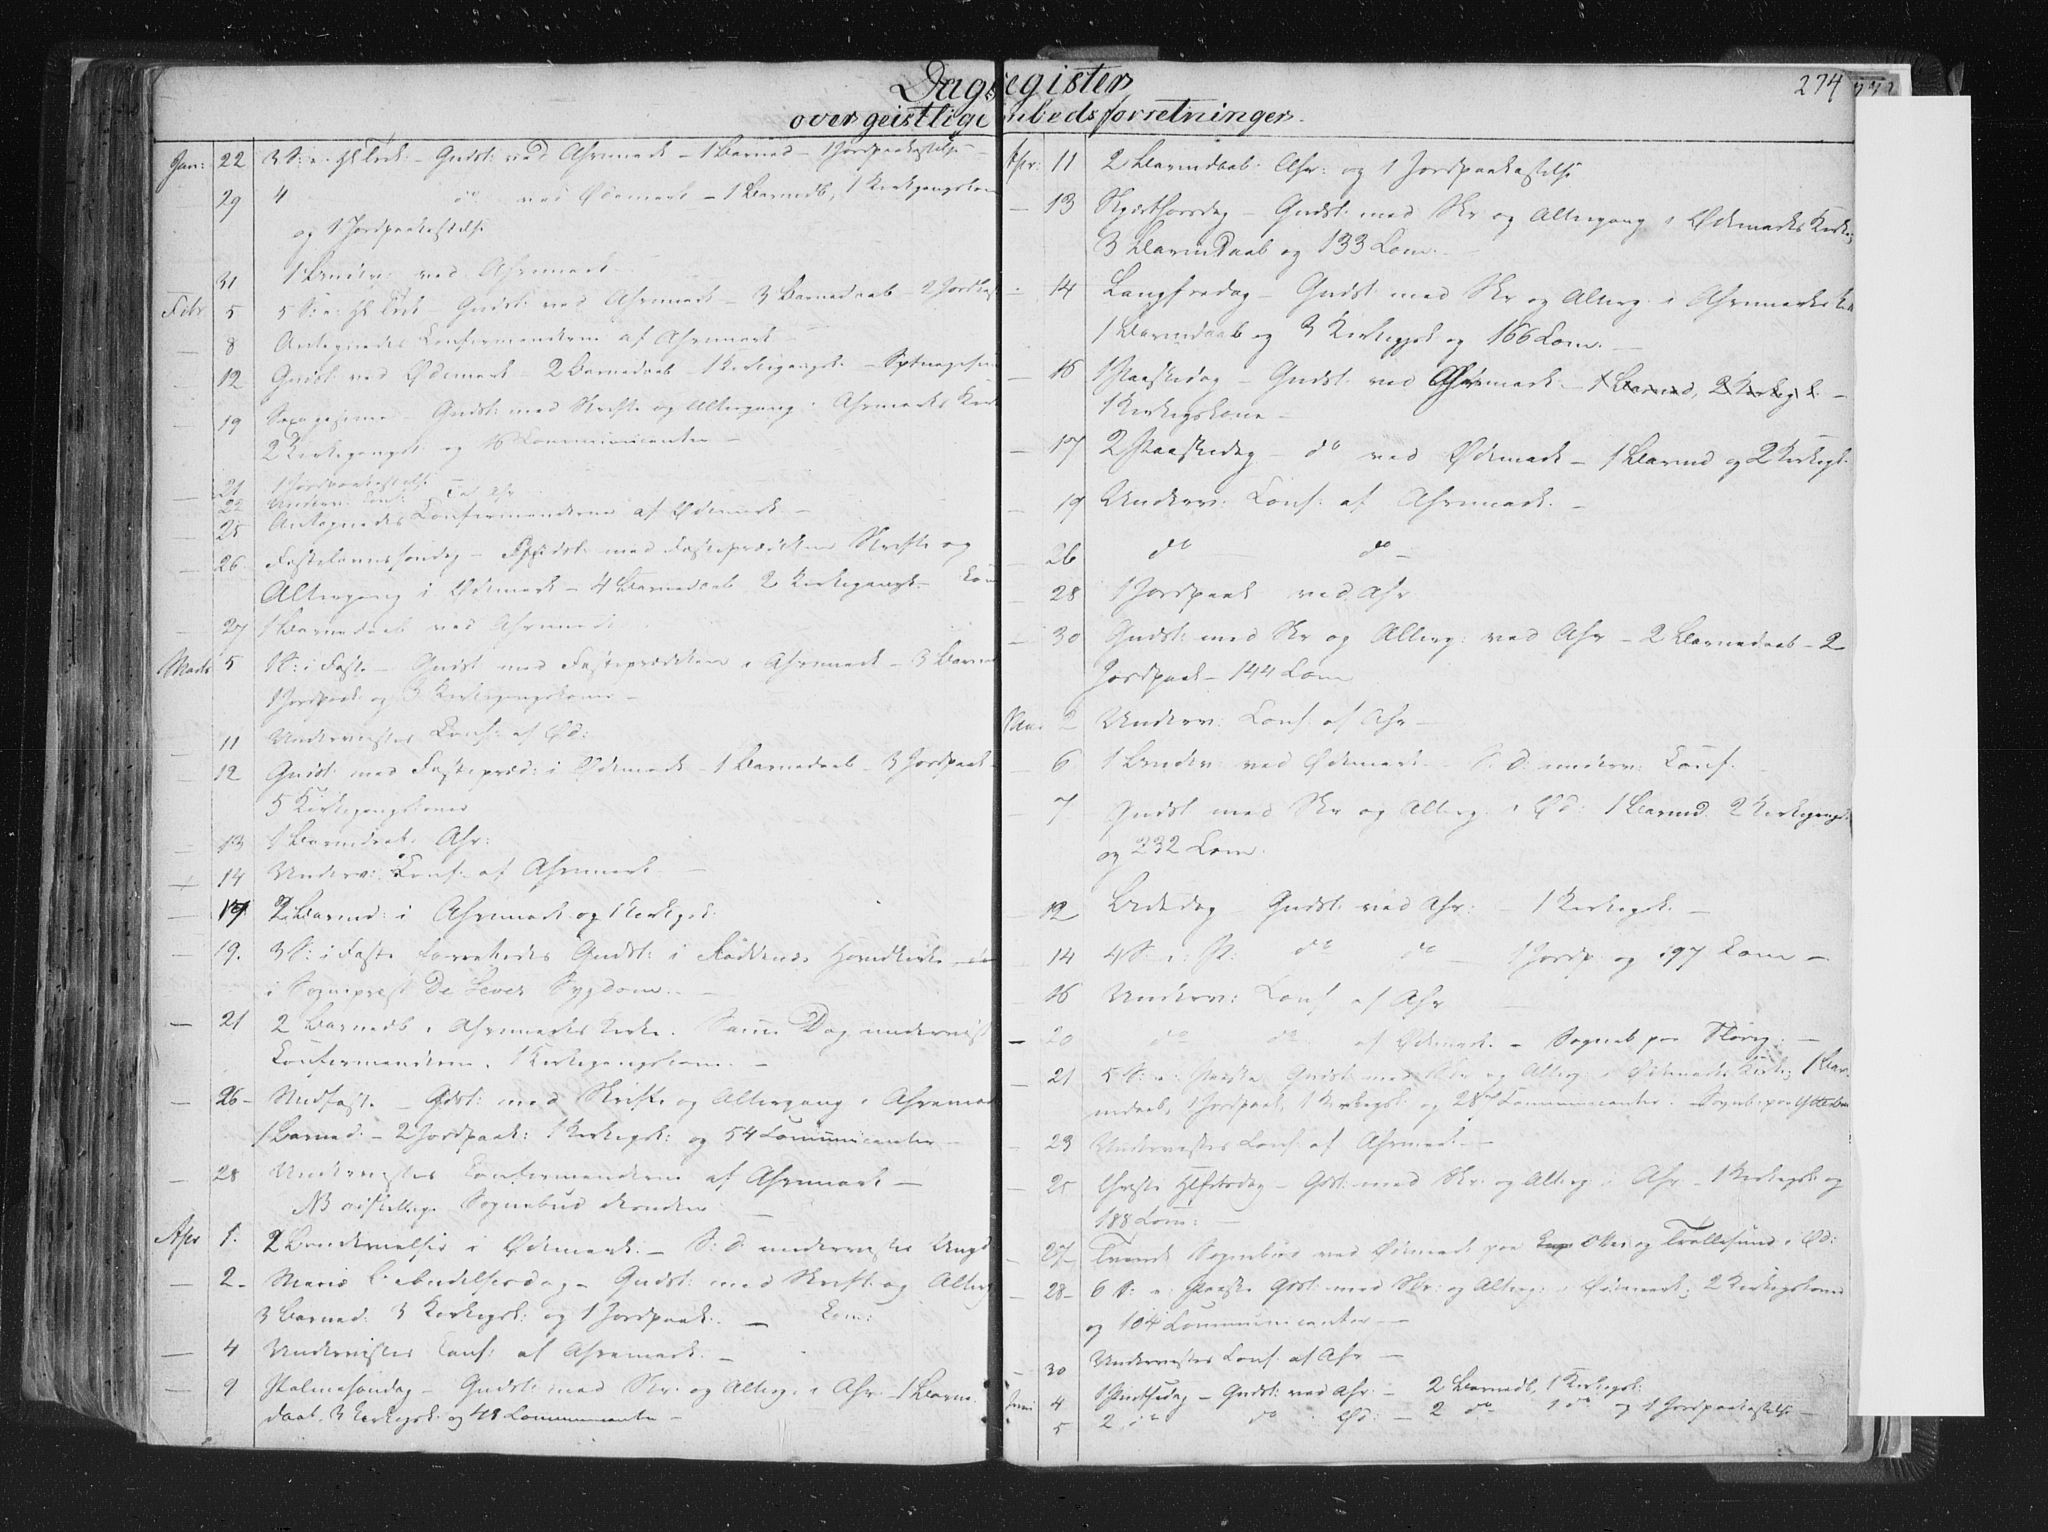 Dagsregister
over geistlige Embedsforretninger.
274
Jan: 22 3 S: e. Hk Trek. – Gudst: ved Ahremark – 1 Barned – 1 Jordpaakastelse –
29 4 do ved Ødemark – 1 Barnedb, 1 Kirkegangskone
og 1 Jordpaakastelse
31 1 Brudev: ved Ahremark
Febr 5 5 S: e: Hk Trek – Gudst: ved Ahremark – 3 Barnedaab – 2 Jordkast
8 Antegnedes Confirmanderne af Ahremark –
12 Gudst: ved Ødemark – 2 Barnedaab – 1 Kirkegangsk – Septuagesima
19 Sexagesima – Gudst: med Skrifte og Altergang i Ahremarks Kirke
2 Kirkegangsk: og 16 Communicanter –
21 1 Jordpaakastelse –
22 Underv: Conf: af Ahr
25 Antegnedes Confirmanderne af Ødemark. –
26 Fastelavnssøndag – Gudst: med Fasteprædiken Skrifte og
Altergang i Ødemark – 4 Barnedaab 2 Kirkegangsk – Com
27 1 Barnedaab ved Ahremark
Marts 5 1 S: i Faste – Gudst med Fasteprædiken i Ahremark – 3 Barned
1 Jordpaak: og 3 Kirkegangskoner –
11 Undervistes Conf: af Ød:
12 Gudst: med Fastepræd: i Ødemark – 1 Barnedaab – 3 Jordpaak –
5 Kirkegangskoner
13 1 Barnedaab. Ahr:
14 Underv: Conf: af Ahremark –
17 2 Barned: i Ahremark og 1 Kirkegsk:
19. 3 S: i Faste forrettedes Gudst: i Røddenæs Hovedkirke
i Sogneprest De Seves Sygdom. –
21 2 Barnedb i Ahremarks Kirke. Samme Dag undervist
Confirmanderne. 1 Kirkegangskone. –
26 – Midfaste – Gdst: med Skrifte og Altergang i Ahremark
1 Barned: – 2 Jordpaak: 1 Kirkegsk: og 54 Communicanter –
28 Undervistes Confirmanderne af Ahremark –
NB Sognebud
Apr 1. 2 Brudevielser i Ødemark. – S: D: undervistes Ungd
2 – Mariæ Bebudelsesdag – Gudst: med Skrift: og Alterg
3 Barned: 3 Kirkegsk: og 1 Jordpaak: – Com:
4 Undervistes Conf: af Ahremark. –
9 Palmesøndag – Gudst: med Skr: og Alterg. i Ahr – 1 Barne
daab. 3 Kirkegsk: og 48 Communicanter –
Apr: 11 2 Barnedaab: Ahr: og 1 Jordpaakastelse
13 Skjærthorsdag – Gudst: med Skr og Altergang i Ødemarks Kirke;
3 Barnedaab og 133 Com. –
14 Langfredag – Gudst: med Skr og Alterg: i Ahremarks
1 Barnedaab og 3 Kirkegsk og 166 Com. –
16 1 Paaskedag – Gudst: ved Ahremark – 1 Barned, 2 Kirkegsk. –
1 Kirkegskone –
17 2 Paaskedag – do ved Ødemark – 1 Barned og 2 Kirkegk:
19 Underv: Conf: af Ahremark. –
26 do do –
28 1 Jordpaak ved Ahr
30 Gudst: med Skr og Alterg: ved Ahr – 2 Barnedaab – 2
Jordpaak – 144 Com
2 Underv: Conf: af Ahr –
6 1 Brudev: ved Ødemark – S: D: underv: Conf.
7 Gudst med Skr og Alterg. i Ød: 1 Barned 2 Kirkegangsk
og 232 Com.
12 Bededag – Gudst: ved Ahr: – 1 Kirkegsk. –
14 4 S: e: P: do do – 1 Jordp: og 197 Com –
16 Underv: Conf af Ahr –
20 do do af Ødemark. – Sogneb paa Fløvig. –
21 5 S: e: Paaske Gudst: med Skr og Alterg: i Ødemarks Kirke; 1 Bar
nedaab, 1 Jordpaak, 1 Kirkegsk: og 28 Communicanter. Sogneb: paa
23 Undervistes Conf af Ahremark. –
25 Christi Hlfrtsdag – Gdst: med Skr: og Alterg: i Ahr – 1 Kirkegsk: og
188 Com: –
27 – Tvende Sognebud ved Ødemark paa og Trollesund i Ød:
28 – 6 S: e: Paaske Gdst: med Skr: og Alterg: i Ødemark; 2 Kirkegskoner
og 104 Communicanter –
30 Undervistes Conf. af Ahr –
Juni 4 1 Pintsedag – Gudst: ved Ahr: – 2 Barnedb, 1 Kirkegsk:
5 2 do do Ød: – 2 do 1 do og 1 Jordpaakastelse –